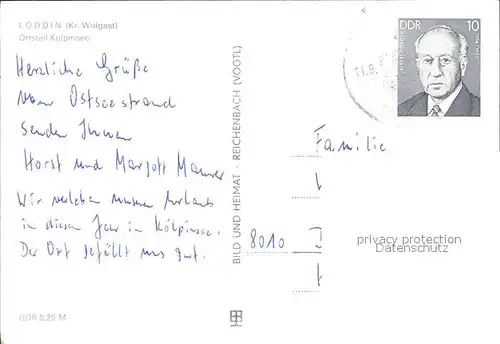 LODDIN (Kr. Wolgast)
Ortsteil Kölpinsee
Herzliche Grüße
vom Ostseestrand
senden Ihnen
Horst und Margott Maurer
Wir verleben unseren Urlaub
in diesem Jahr in Kölpinsee.
Der Ort gefällt uns gut.
DDR 0,25 M
BILD UND HEIMAT - REICHENBACH (VOGTL)
DDR 10
11.8.
Familie
8010
privacy protection
Datenschutz